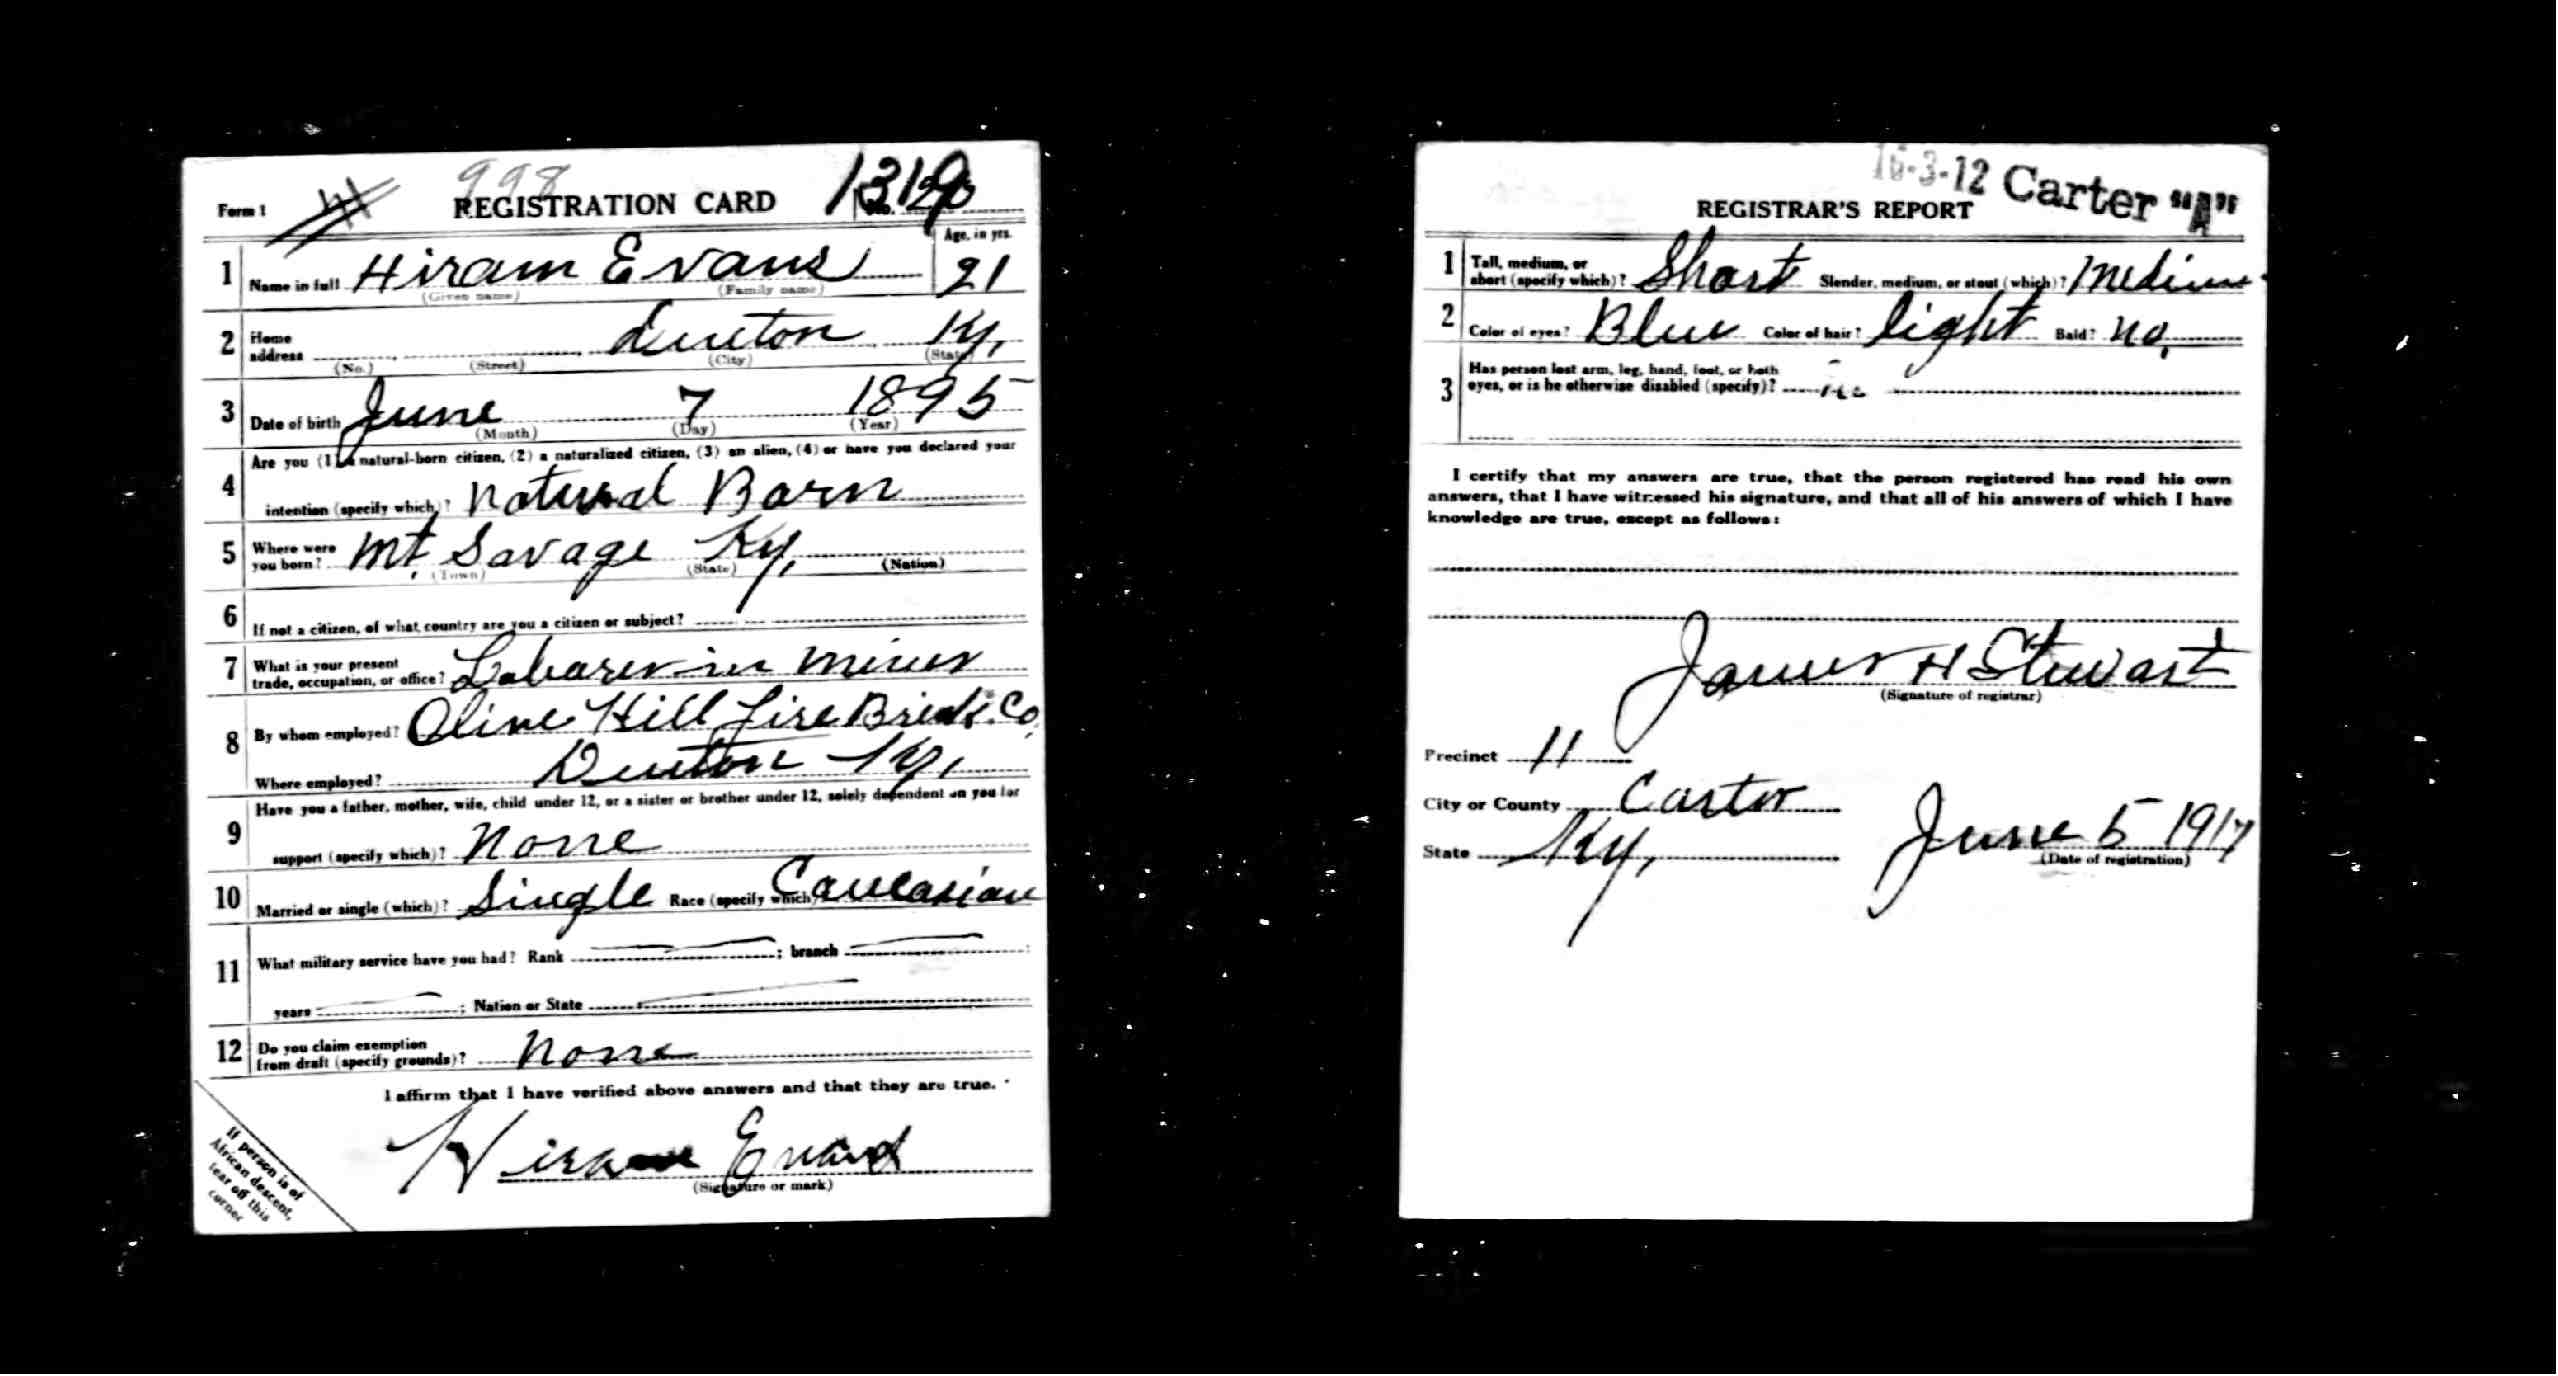 998
Form 1 REGISTRATION CARD No.
Age, in yrs.
1 Name in full Hiram Evans 21
(Given name) (Family name)
2 Home address Denton Ky,
(No.) (Street) (City) (State)
3 Date of birth June 7 1895
(Month) (Day) (Year)
4 Are you (1) a natural-born citizen, (2) a naturalized citizen, (3) an alien, (4) or have you declared your
intention (specify which)? Natural Born
5 Where were you born? Mt, Savage Ky,
(Town) (State) (Nation)
6 If not a citizen, of what country are you a citizen or subject?
7 What is your present trade, occupation, or office? Laborer in Mines
8 By whom employed? Olive Hill Fire Brick Co,
Where employed? Denton Ky,
9 Have you a father, mother, wife, child under 12, or a sister or brother under 12, solely dependent on you for
support (specify which)? None
10 Married or single (which)? Single Race (specify which) Caucasian
11 What military service have you had? Rank ; branch
years ; Nation or State
12 Do you claim exemption from draft (specify grounds)? None
I affirm that I have verified above answers and that they are true.
Hiram Evans
(Signature or mark)
If person is of
African descent,
tear off this
corner
16-3-12 Carter "A"
REGISTRAR'S REPORT
1 Tall, medium, or short (specify which)? Short Slender, medium, or stout (which)? Medium
2 Color of eyes? Blue Color of hair? light Bald? no,
3 Has person lost arm, leg, hand, foot, or both
eyes, or is he otherwise disabled (specify)? no
I certify that my answers are true, that the person registered has read his own
answers, that I have witnessed his signature, and that all of his answers of which I have
knowledge are true, except as follows:
James H Stewart
(Signature of registrar)
Precinct 11
City or County Carter
State Ky, June 5 1917
(Date of registration)